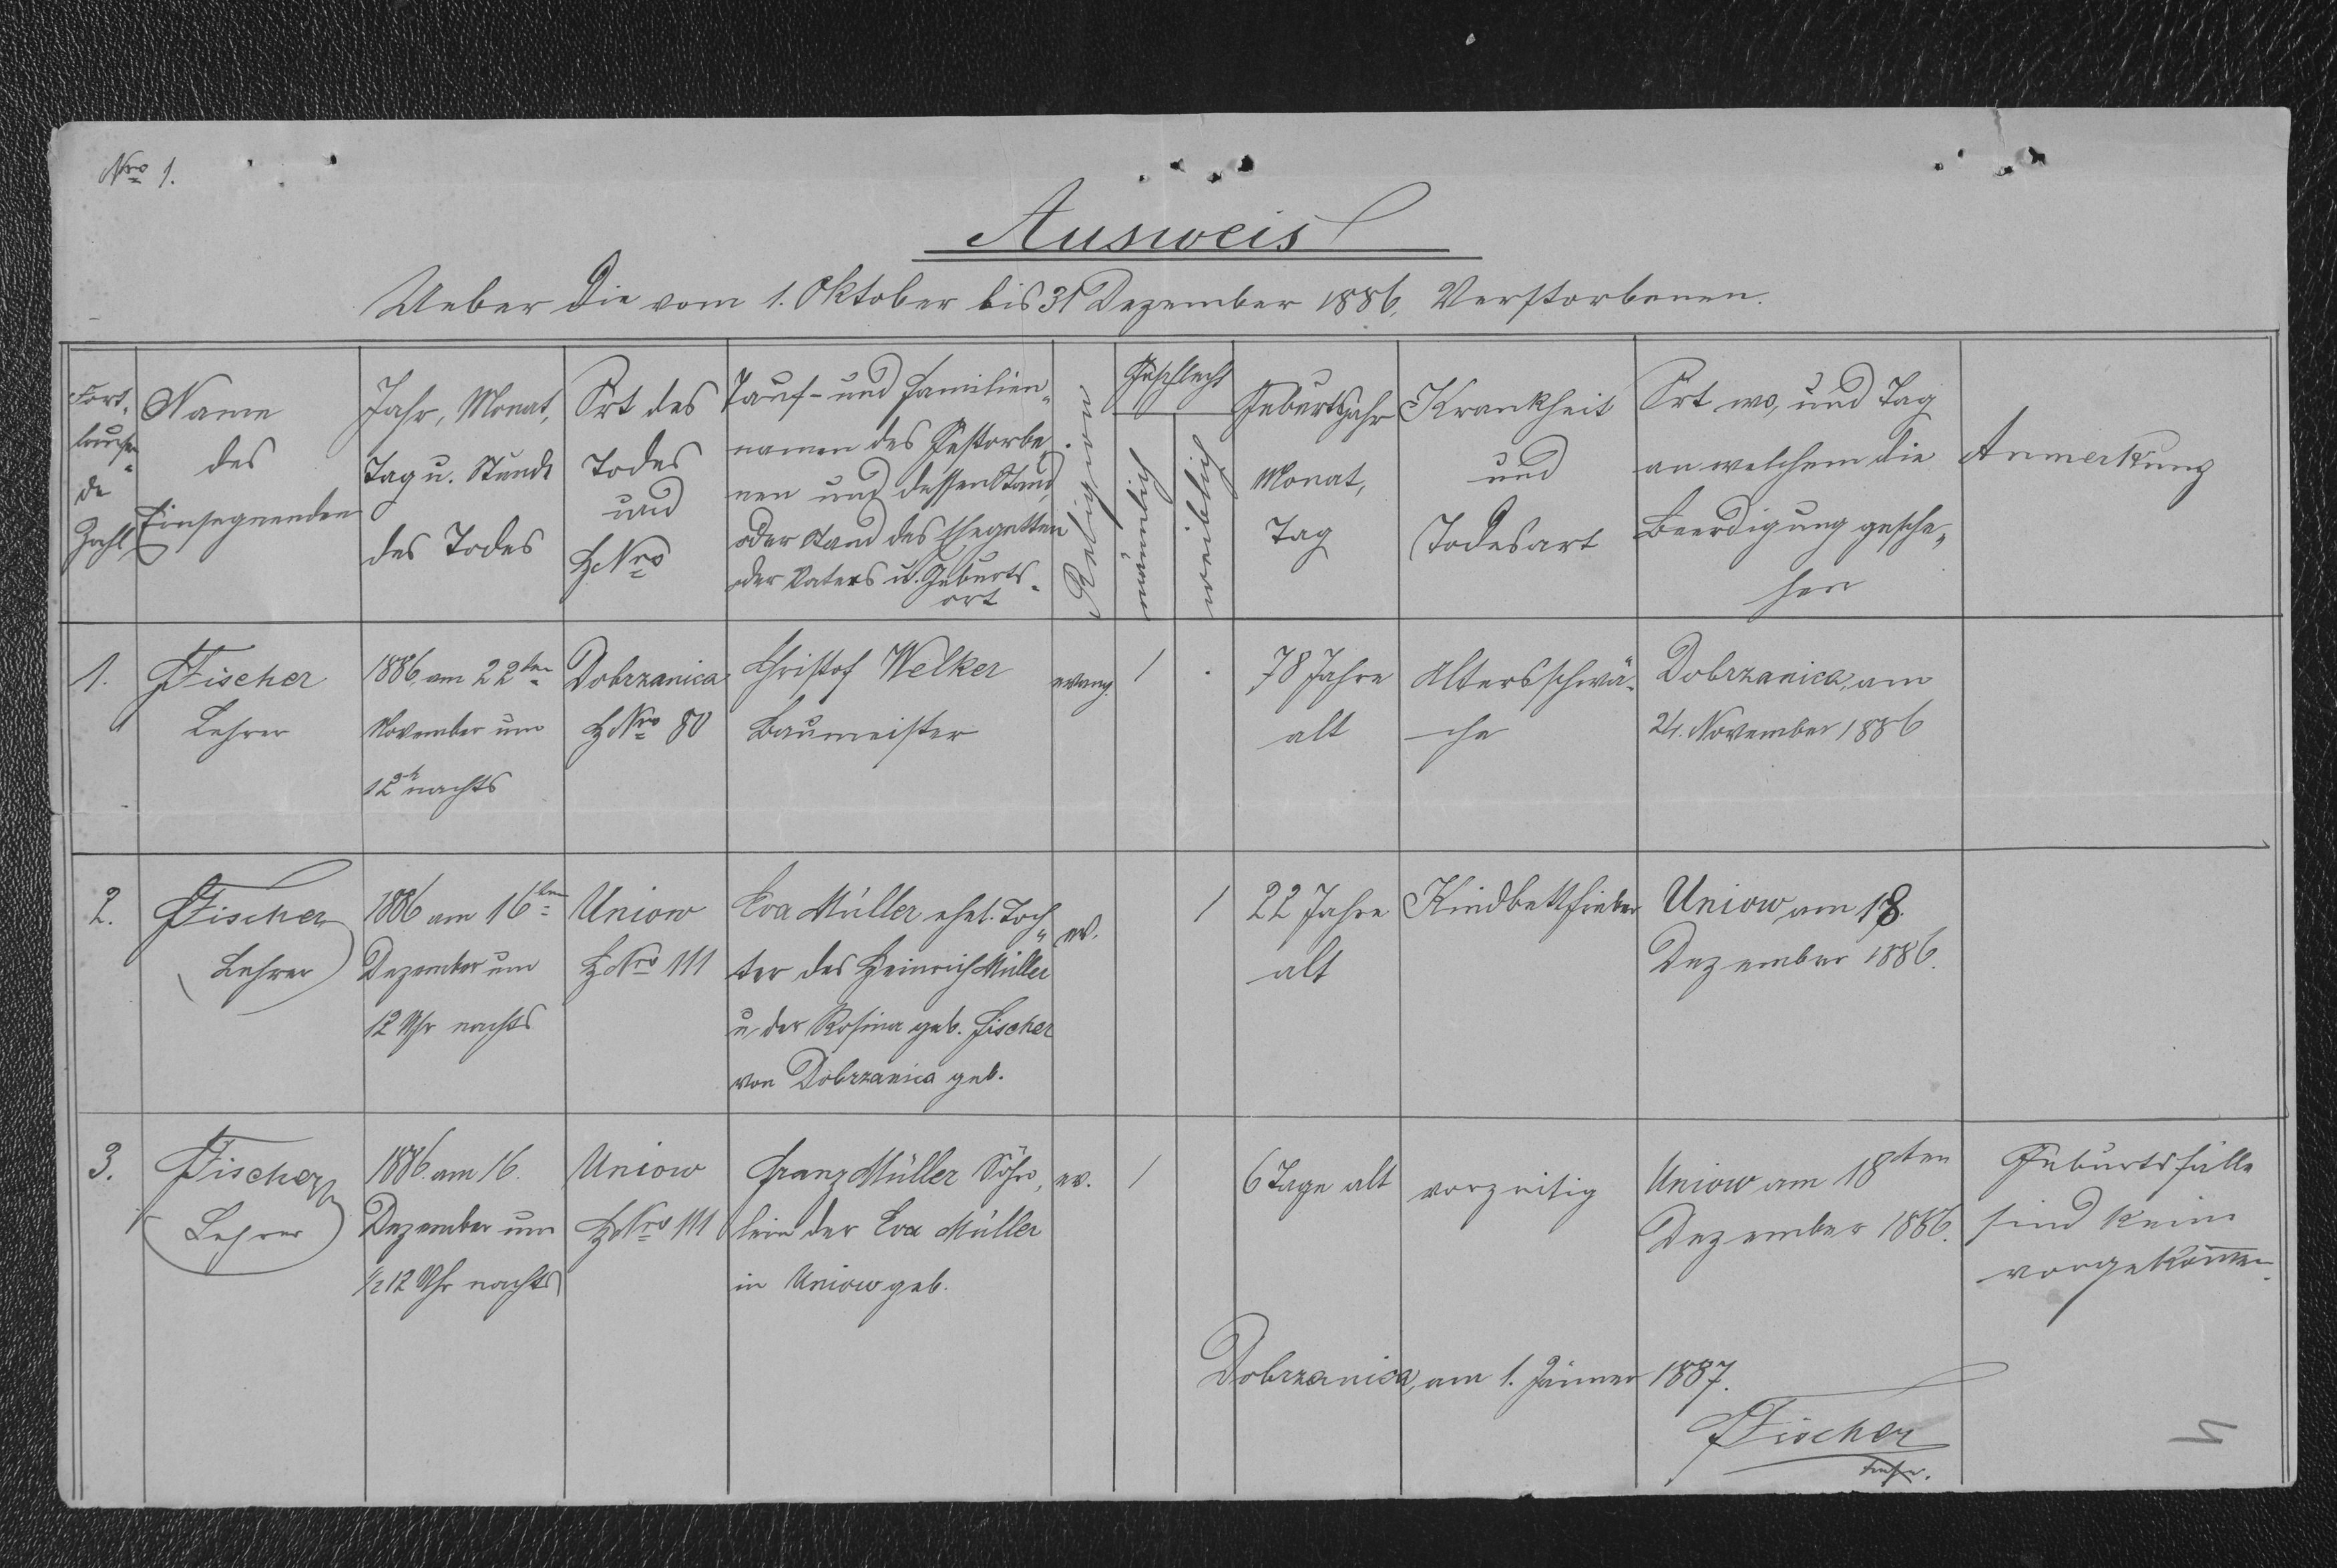 Nro 1.
Ausweis
Ueber die vom 1. Oktober bis 31 Dezember 1886, Verstorbenen.
Fort-
laufen-
de
Zahl
Name
des
Einsegnenden
Jahr, Monat,
Tag u. Stunde
des Todes
Ort des
Todes
und
HNro
Tauf- und Familien-
namen des Gestorbe-
nen und dessen Stand,
oder Stand des Ehegatten
oder Vaters u. Geburts-
ort
Religion
Geschlecht
männlich
weiblich
Geburtsjahr
Monat,
Tag
Krankheit
und
Todesart
Ort wo, und Tag
an welchem die
Beerdigung gesche-
hen
Anmerkung
1.
Fischer
Lehrer
1886, am 22ten
November um
12h nachts
Dobrzanica
HNro 80
Christof Welker
Baumeister
evang.
1
.
78 Jahre
alt
Altersschwä-
che
Dobrzanica, am
24. November 1886
2.
Fischer
Lehrer
1886 am 16ten
Dezember um
12 Uhr nachts
Uniow
HNro 111
Eva Müller ehel. Toch-
ter des Heinrich Müller
u. der Rosina geb. Fischer
von Dobrzanica geb.
ev.
1
22 Jahre
alt
Kindbettfieber
Uniow, am 18.
Dezember 1886.
3.
Fischer
Lehrer
1886. am 16.
Dezember um
1/2 12 Uhr nachts
Uniow
HNro 111
Franz Müller Söhn-
lein der Eva Müller
in Uniow geb.
ev.
1
6 Tage alt
vorzeitig
Uniow am 18ten
Dezember 1886.
Geburtsfälle
sind keine
vorgekommen.
Dobrzanica, am 1. Jänner 1887.
Fischer